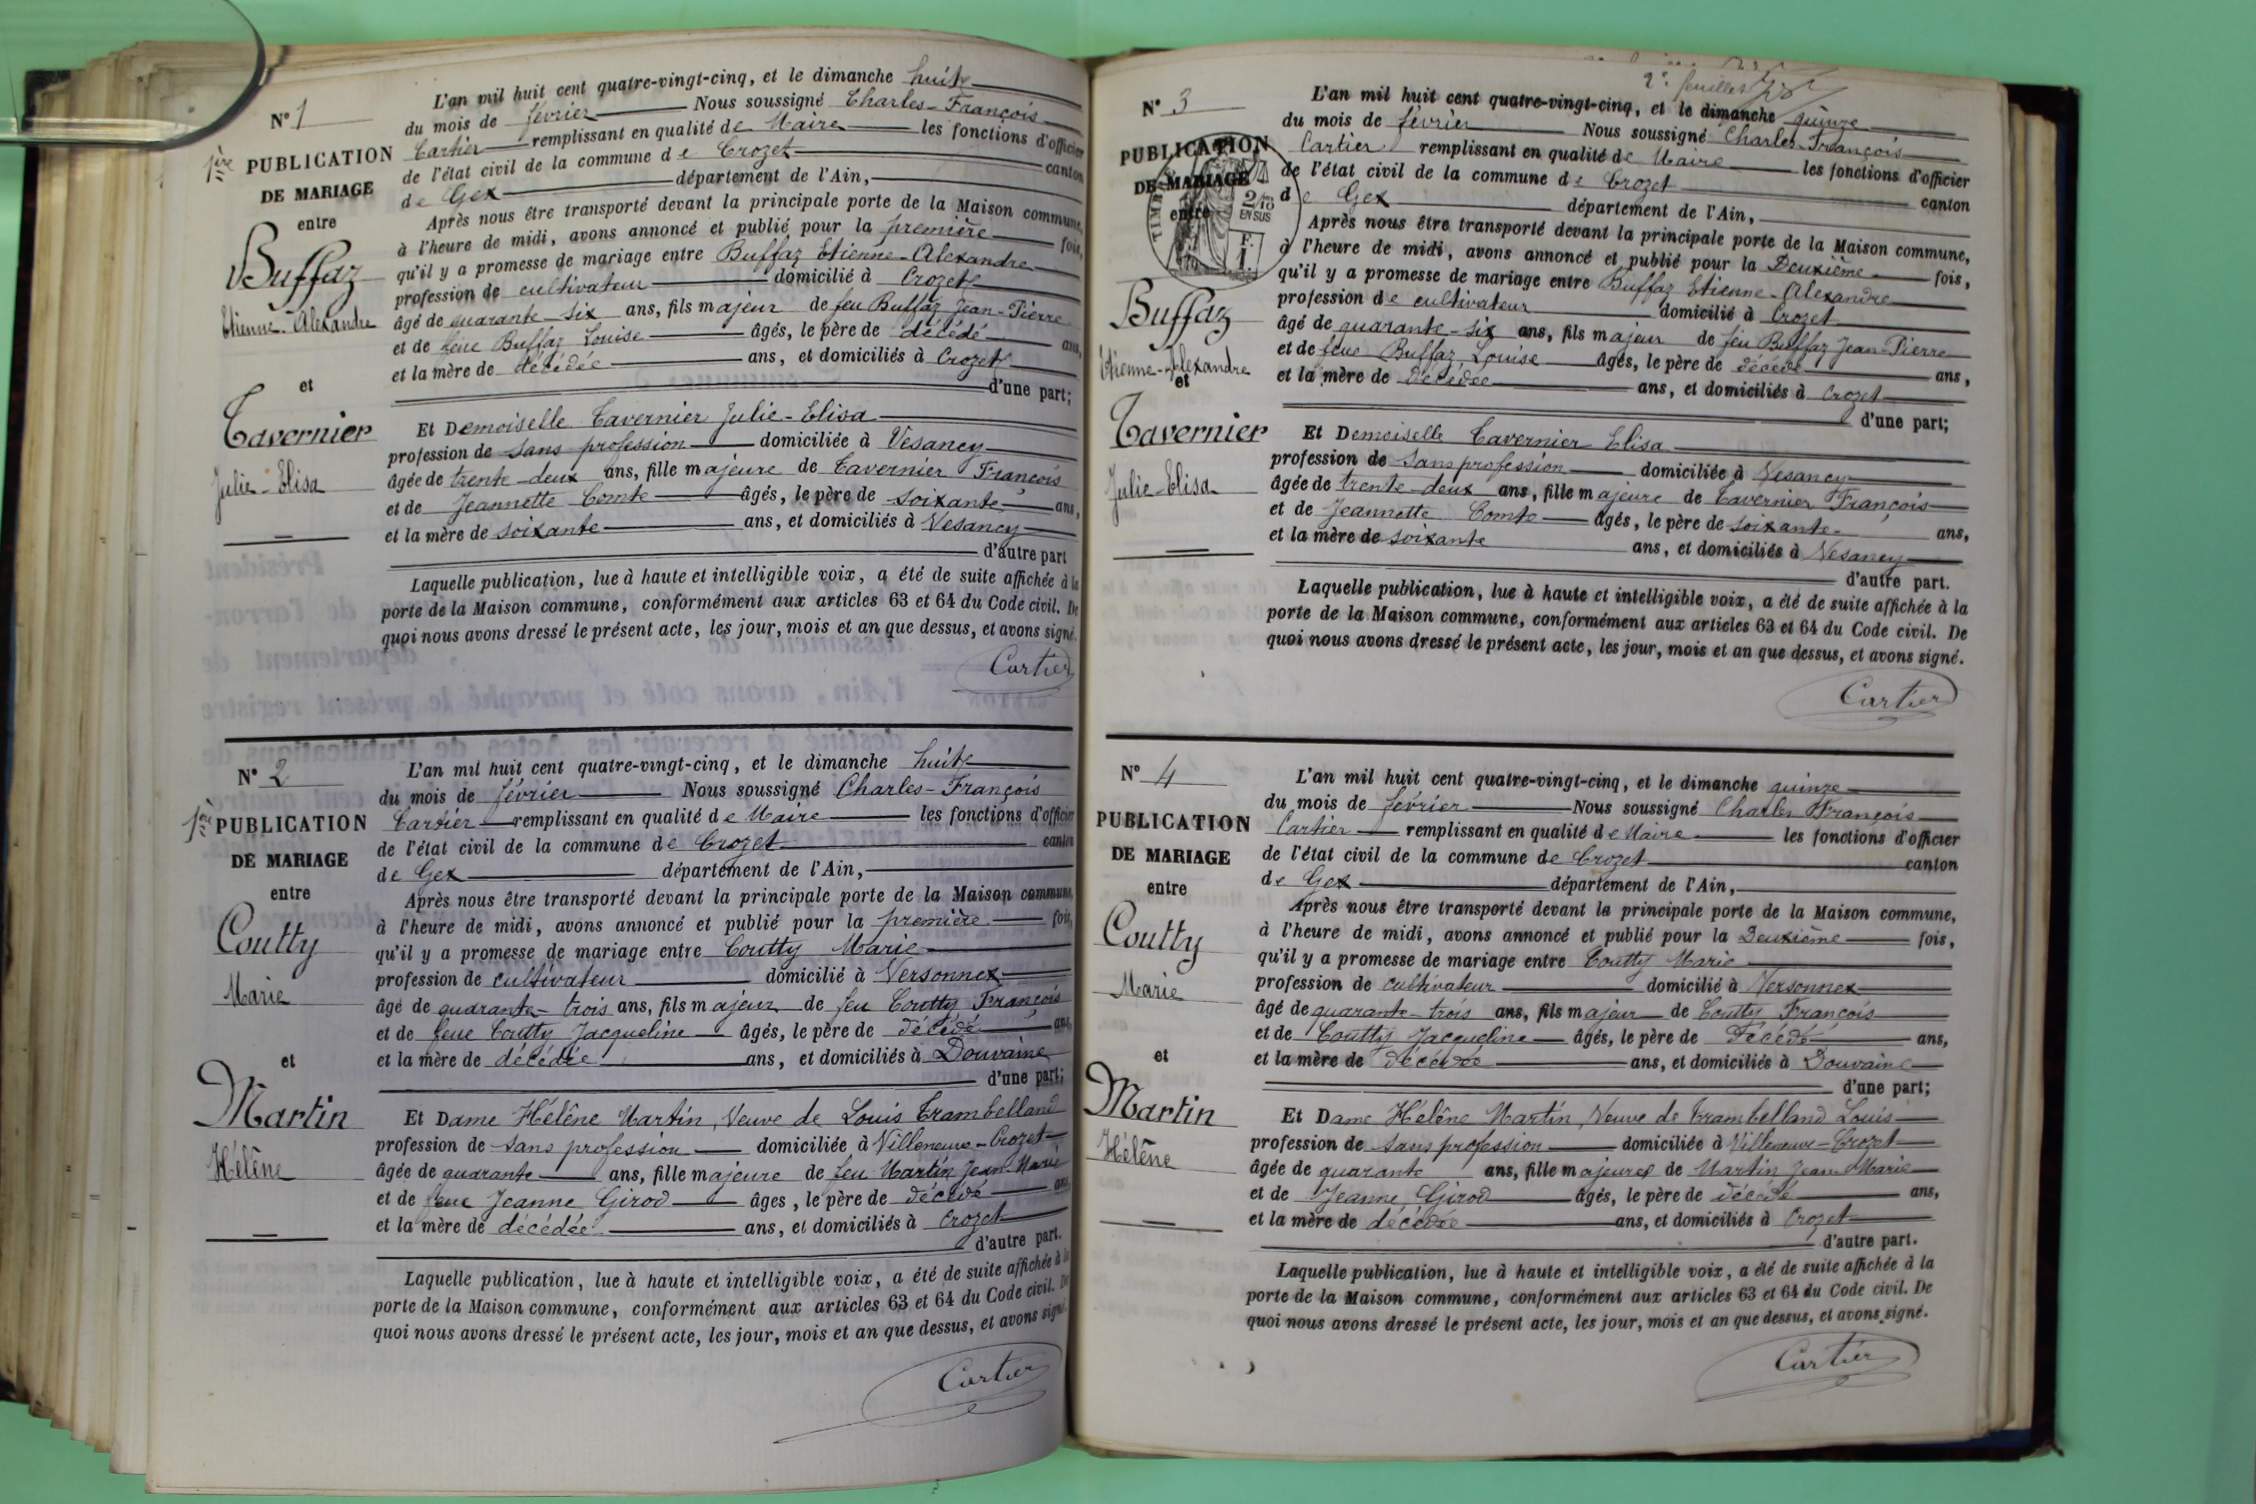 N° 1
1ère PUBLICATION
DE MARIAGE
entre
Buffaz
Etienne-Alexandre
et
Tavernier
Julie-Elisa
L'an mil huit cent quatre-vingt-cinq, et le dimanche huit
du mois de février Nous soussigné Charles-François
Cartier remplissant en qualité de Maire les fonctions d'officier
de l'état civil de la commune de Crozet canton
de Gex département de l'Ain,
Après nous être transporté devant la principale porte de la Maison commune,
à l'heure de midi, avons annoncé et publié pour la première fois,
qu'il y a promesse de mariage entre Buffaz Etienne-Alexandre
profession de cultivateur domicilié à Crozet
âgé de quarante-six ans, fils majeur de feu Buffaz Jean-Pierre
et de feue Buffaz Louise âgés, le père de décédé ans,
et la mère de décédée ans, et domiciliés à Crozet
d'une part;
Et Demoiselle Tavernier Julie-Elisa
profession de sans profession domiciliée à Vesancy
âgée de trente-deux ans, fille majeure de Tavernier François
et de Jeannette Comte âgés, le père de soixante ans,
et la mère de soixante ans, et domiciliés à Vesancy
d'autre part
Laquelle publication, lue à haute et intelligible voix, a été de suite affichée à la
porte de la Maison commune, conformément aux articles 63 et 64 du Code civil. De
quoi nous avons dressé le présent acte, les jour, mois et an que dessus, et avons signé.
Cartier
N° 2
1ère PUBLICATION
DE MARIAGE
entre
Coutty
Marie
et
Martin
Hélène
L'an mil huit cent quatre-vingt-cinq, et le dimanche huit
du mois de février Nous soussigné Charles-François
Cartier remplissant en qualité de Maire les fonctions d'officier
de l'état civil de la commune de Crozet canton
de Gex département de l'Ain,
Après nous être transporté devant la principale porte de la Maison commune,
à l'heure de midi, avons annoncé et publié pour la première fois,
qu'il y a promesse de mariage entre Coutty Marie
profession de cultivateur domicilié à Versonnex
âgé de quarante-trois ans, fils majeur de feu Coutty François
et de feue Coutty Jacqueline âgés, le père de décédé ans,
et la mère de décédée ans, et domiciliés à Douvaine
d'une part;
Et Dame Hélène Martin, Veuve de Louis Trambelland
profession de sans profession domiciliée à Villeneuve-Crozet
âgée de quarante ans, fille majeure de feu Martin Jean-Marie
et de feue Jeanne Girod âgés, le père de décédé ans,
et la mère de décédée ans, et domiciliés à Crozet
d'autre part.
Laquelle publication, lue à haute et intelligible voix, a été de suite affichée à la
porte de la Maison commune, conformément aux articles 63 et 64 du Code civil. De
quoi nous avons dressé le présent acte, les jour, mois et an que dessus, et avons signé.
Cartier
2e feuillet
N° 3
PUBLICATION
DE MARIAGE
entre
TIMB
2/10
EN SUS
F.
1
Buffaz
Etienne-Alexandre
et
Tavernier
Julie-Elisa
L'an mil huit cent quatre-vingt-cinq, et le dimanche quinze
du mois de février Nous soussigné Charles-François
Cartier remplissant en qualité de Maire les fonctions d'officier
de l'état civil de la commune de Crozet canton
de Gex département de l'Ain,
Après nous être transporté devant la principale porte de la Maison commune,
à l'heure de midi, avons annoncé et publié pour la Deuxième fois,
qu'il y a promesse de mariage entre Buffaz Etienne-Alexandre
profession de cultivateur domicilié à Crozet
âgé de quarante-six ans, fils majeur de feu Buffaz Jean-Pierre
et de feue Buffaz Louise âgés, le père de décédé ans,
et la mère de décédée ans, et domiciliés à Crozet
d'une part;
Et Demoiselle Tavernier Elisa
profession de sans profession domiciliée à Vesancy
âgée de trente-deux ans, fille majeure de Tavernier François
et de Jeannette Comte âgés, le père de soixante ans,
et la mère de soixante ans, et domiciliés à Vesancy
d'autre part.
Laquelle publication, lue à haute et intelligible voix, a été de suite affichée à la
porte de la Maison commune, conformément aux articles 63 et 64 du Code civil. De
quoi nous avons dressé le présent acte, les jour, mois et an que dessus, et avons signé.
Cartier
N° 4
PUBLICATION
DE MARIAGE
entre
Coutty
Marie
et
Martin
Hélène
L'an mil huit cent quatre-vingt-cinq, et le dimanche quinze
du mois de février Nous soussigné Charles François
Cartier remplissant en qualité de Maire les fonctions d'officier
de l'état civil de la commune de Crozet canton
de Gex département de l'Ain,
Après nous être transporté devant la principale porte de la Maison commune,
à l'heure de midi, avons annoncé et publié pour la Deuxième fois,
qu'il y a promesse de mariage entre Coutty Marie
profession de cultivateur domicilié à Versonnex
âgé de quarante-trois ans, fils majeur de Coutty François
et de Coutty Jacqueline âgés, le père de Décédé ans,
et la mère de décédée ans, et domiciliés à Douvaine
d'une part;
Et Dame Hélène Martin, Veuve de Trambelland Louis
profession de sans profession domiciliée à Villeneuve-Crozet
âgée de quarante ans, fille majeure de Martin Jean Marie
et de Jeanne Girod âgés, le père de décédé ans,
et la mère de décédée ans, et domiciliés à Crozet
d'autre part.
Laquelle publication, lue à haute et intelligible voix, a été de suite affichée à la
porte de la Maison commune, conformément aux articles 63 et 64 du Code civil. De
quoi nous avons dressé le présent acte, les jour, mois et an que dessus, et avons signé.
Cartier